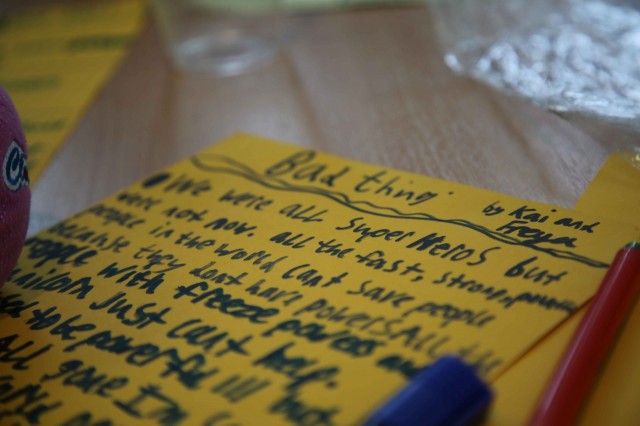 Bad thing.
by Kai and
Freya
We were all super Heros but
were not now. all the fast, strong,
people in the world cant save people
because they dont have powers All the
People with freeze powers
just cant help.
to be powerful !!! but
All gone I'm